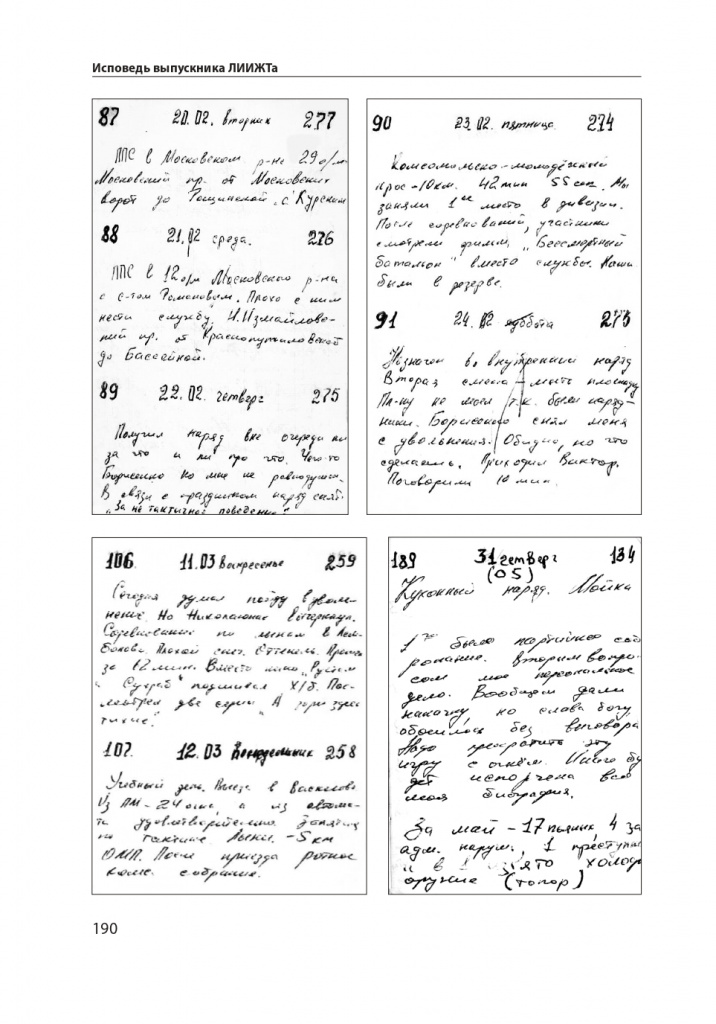 Исповедь выпускника ЛИИЖТа
87 20.02. вторник 277
ППС в Московском р-не 29 о/м
Московский пр. от Московских
ворот до Рощинской, с Курским
88 21.02 среда. 276
ППС в 12 о/м Московского р-на
с с-том Романовым. Плохо с ним
нести службу. Н.Измайловс-
кий пр. от Краснопутиловской
до Бассейной.
89 22.02. четверг 275
Получил наряд вне очереди ни
за что и ни про что. Чего-то
Борисенко ко мне не равнодушен.
В связи с праздником наряд снят.
"За не тактичное поведение"
90 23.02. пятница 274
Комсомольско-молодёжный
крос - 10км. 42 мин 55 сек. Мы
заняли 1ое место в дивизии.
После соревнований, участники
смотрели фильм, "Бессмертный
батальон" вместо службы. Наши
были в резерве.
91 24.02 суббота 273
Назначен во внутренний наряд
Втораз смена - мыть площадку
не мыл т.к. были наряд-
ники. Борисенко снял меня
с увольнения. Обидно, но что
сделаешь. Приходил Виктор.
Поговорили 10 мин.
106. 11.03 Воскресенье 259
Сегодня думал пойду в уволь-
нение. Но Николаенок вычеркнул.
Соревнования по лыжам в Кем-
болово. Плохой снег. Оттепель.
за 12 мин. Вместо кино "Руслан
и подшивал Х/б. Пос-
мотрел две серии "А зори здесь
тихие".
107. 12.03 Понедельник 258
Учебный день. Выезд в Васкелово
Из ПМ - 24 очка, а из автома-
та удовлетворительно. Занятия
по тактике. Лыжи. - 5 км
ОМП. После приезда ротное
комс. собрание.
189 31 четверг 134
(05)
Кухонный наряд. Мойка
1ое было партийное соб
рание. Вторым вопро-
сом мое персональное
дело. Вообщем дали
накачку, но слава богу,
обошлось без выговора
Надо прекратить эту
игру с огнём. Иначе бу
дет испорчена вся
моя биография.
За май - 17 пьяных, 4 за
адм. наруш., 1 преступн
и в 1 холодн
оружие (топор)
190